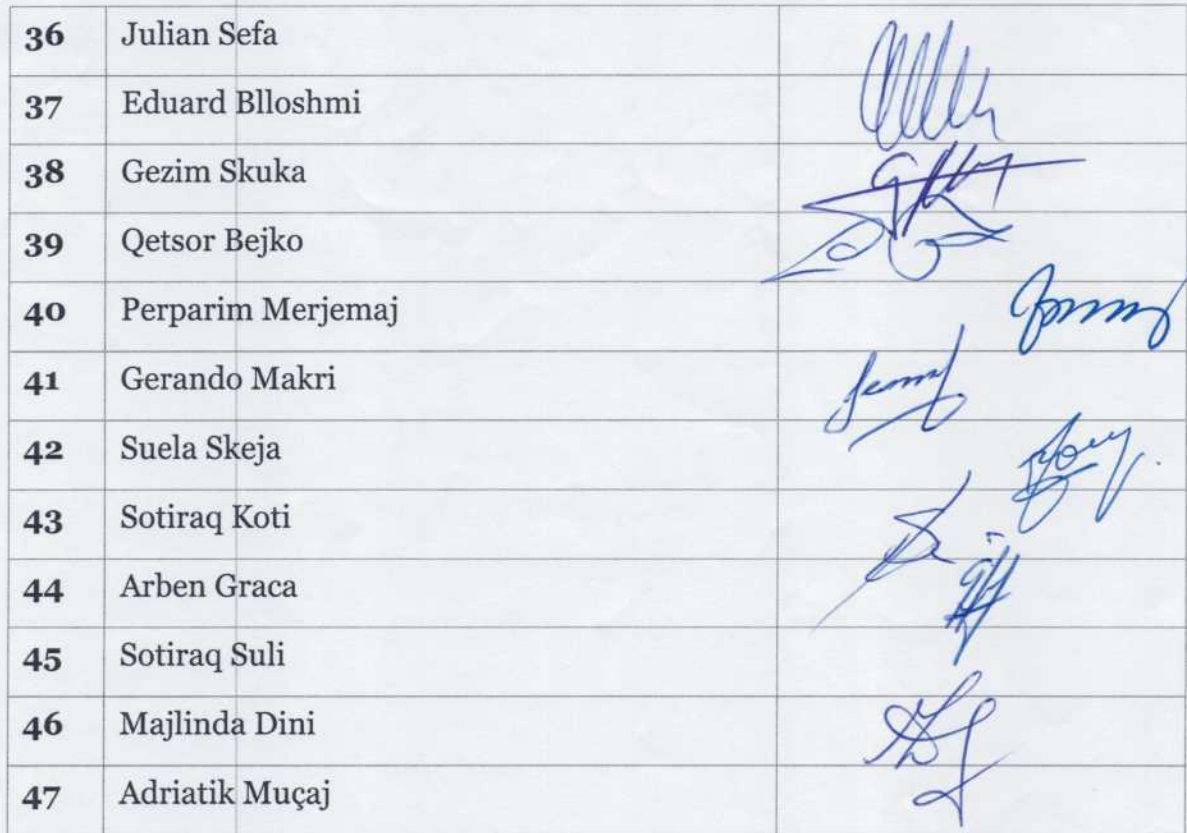 36 Julian Sefa
37 Eduard Blloshmi
38 Gezim Skuka
39 Qetsor Bejko
40 Perparim Merjemaj
41 Gerando Makri
42 Suela Skeja
43 Sotiraq Koti
44 Arben Graca
45 Sotiraq Suli
46 Majlinda Dini
47 Adriatik Muçaj